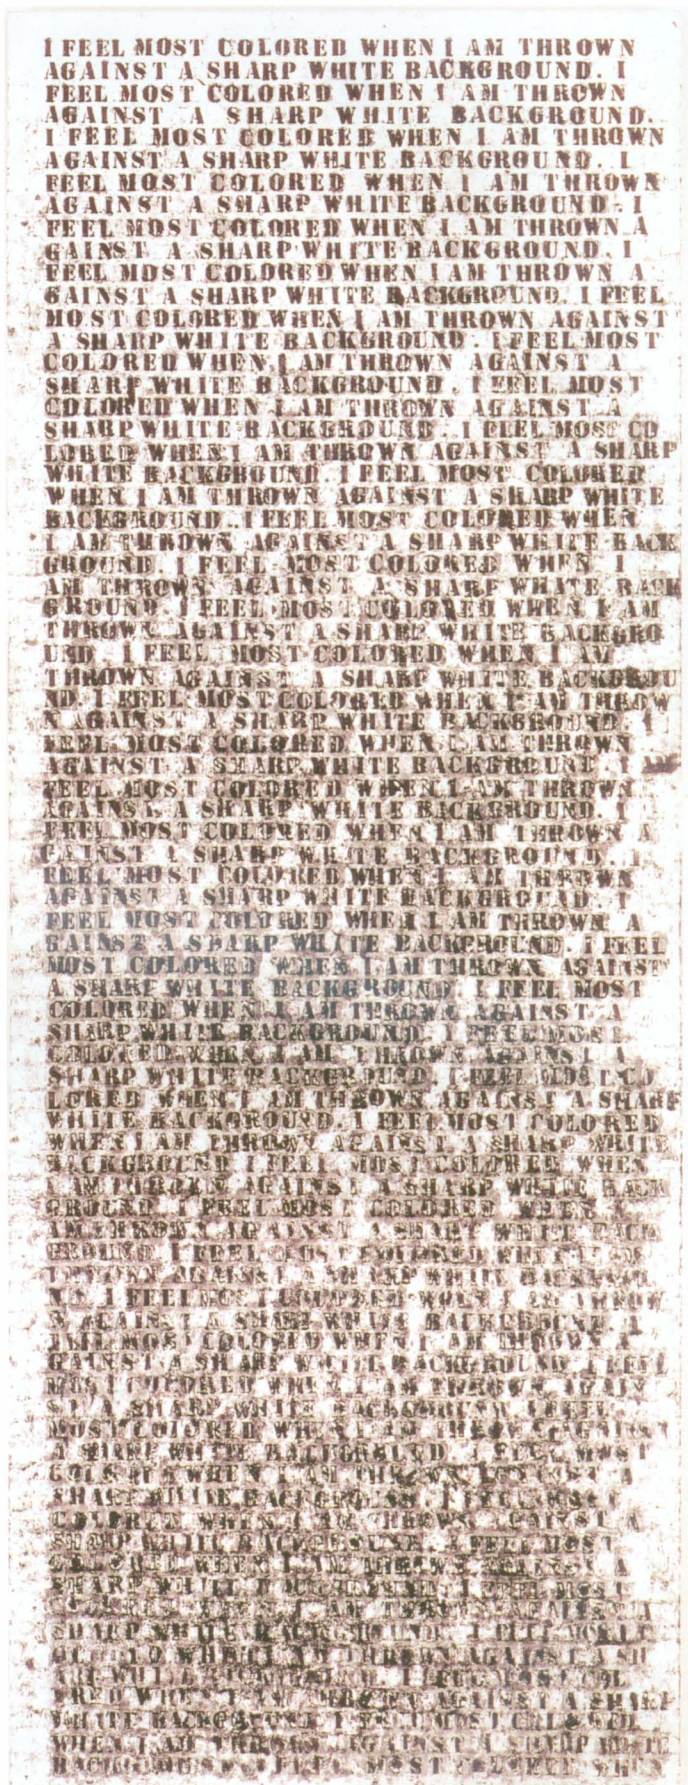 I FEEL MOST COLORED WHEN I AM THROWN
AGAINST A SHARP WHITE BACKGROUND. I
FEEL MOST COLORED WHEN I AM THROWN
AGAINST A SHARP WHITE BACKGROUND.
I FEEL MOST COLORED WHEN I AM THROWN
AGAINST A SHARP WHITE BACKGROUND. I
FEEL MOST COLORED WHEN I AM THROWN
AGAINST A SHARP WHITE BACKGROUND. I
FEEL MOST COLORED WHEN I AM THROWN A
GAINST A SHARP WHITE BACKGROUND. I
FEEL MOST COLORED WHEN I AM THROWN A
GAINST A SHARP WHITE BACKGROUND. I FEEL
MOST COLORED WHEN I AM THROWN AGAINST
A SHARP WHITE BACKGROUND. I FEEL MOST
COLORED WHEN I AM THROWN AGAINST A
SHARP WHITE BACKGROUND. I FEEL MOST
COLORED WHEN I AM THROWN AGAINST A
SHARP WHITE BACKGROUND. I FEEL MOST CO
LORED WHEN I AM THROWN AGAINST A SHARP
WHITE BACKGROUND. I FEEL MOST COLORED
WHEN I AM THROWN AGAINST A SHARP WHITE
BACKGROUND. I FEEL MOST COLORED WHEN
I AM THROWN AGAINST A SHARP WHITE BACK
GROUND. I FEEL MOST COLORED WHEN I
AM THROWN AGAINST A SHARP WHITE BACK
GROUND. I FEEL MOST COLORED WHEN I AM
THROWN AGAINST A SHARP WHITE BACKGRO
UND I FEEL MOST COLORED WHEN I AM
THROWN AGAINST A SHARP WHITE BACKGROU
ND. I FEEL MOST COLORED WHEN I AM THROW
N AGAINST A SHARP WHITE BACKGROUND. I
FEEL MOST COLORED WHEN I AM THROWN
AGAINST A SHARP WHITE BACKGROUND. I
FEEL MOST COLORED WHEN I AM THROWN
AGAINST A SHARP WHITE BACKGROUND. I
FEEL MOST COLORED WHEN I AM THROWN A
GAINST A SHARP WHITE BACKGROUND. I
FEEL MOST COLORED WHEN I AM THROWN
AGAINST A SHARP WHITE BACKGROUND I
FEEL MOST COLORED WHEN I AM THROWN A
GAINST A SHARP WHITE BACKGROUND. I FEEL
MOST COLORED WHEN I AM THROWN AGAINST
A SHARP WHITE BACKGROUND I FEEL MOST
COLORED WHEN I AM THROWN AGAINST A
SHARP WHITE BACKGROUND. I FEEL MOST
COLORED WHEN I AM THROWN AGAINST A
SHARP WHITE BACKGROUND. I FEEL MOST CO
LORED WHEN I AM THROWN AGAINST A SHARP
WHITE BACKGROUND. I FEEL MOST COLORED
WHEN I AM THROWN AGAINST A SHARP WHITE
BACKGROUND I FEEL MOST COLORED WHEN
I AM THROWN AGAINST A SHARP WHITE BACK
GROUND. I FEEL MOST COLORED WHEN I
AM AGAINST A SHARP WHITE BACK
GROUND I FEEL MOST COLORED
AGAINST A SHARP WHITE
ND. I FEEL COLORED WHEN I AM THROW
N AGAINST A SHARP WHITE BACKGROUND I
FEEL MOST COLORED WHEN I AM THROWN A
GAINST A SHARP WHITE BACKGROUND. I FEEL
MOST COLORED WHEN I AM THROWN AGAIN
ST A SHARP WHITE BACKGROUND I FEEL
MOST COLORED WHEN I AM AGAINST
A SHARP WHITE BACKGROUND I FEEL MOST
WHEN I AM THROWN A
SHARP WHITE BACKGROUND I FEEL MOST
WHEN I AM THROWN AGAINST A
SHARP WHITE I FEEL MOST
WHEN I AM A
SHARP I FEEL MOST
I AM A
SHARP WHITE BACKGROUND. I FEEL
WHEN I AM THROWN AGAINST A SH
ARP I FEEL MOST COL
ORED AGAINST A SHARP
WHITE I FEEL MOST COLORED
WHEN I AM THROWN AGAINST A SHARP WHITE
MOST WHEN